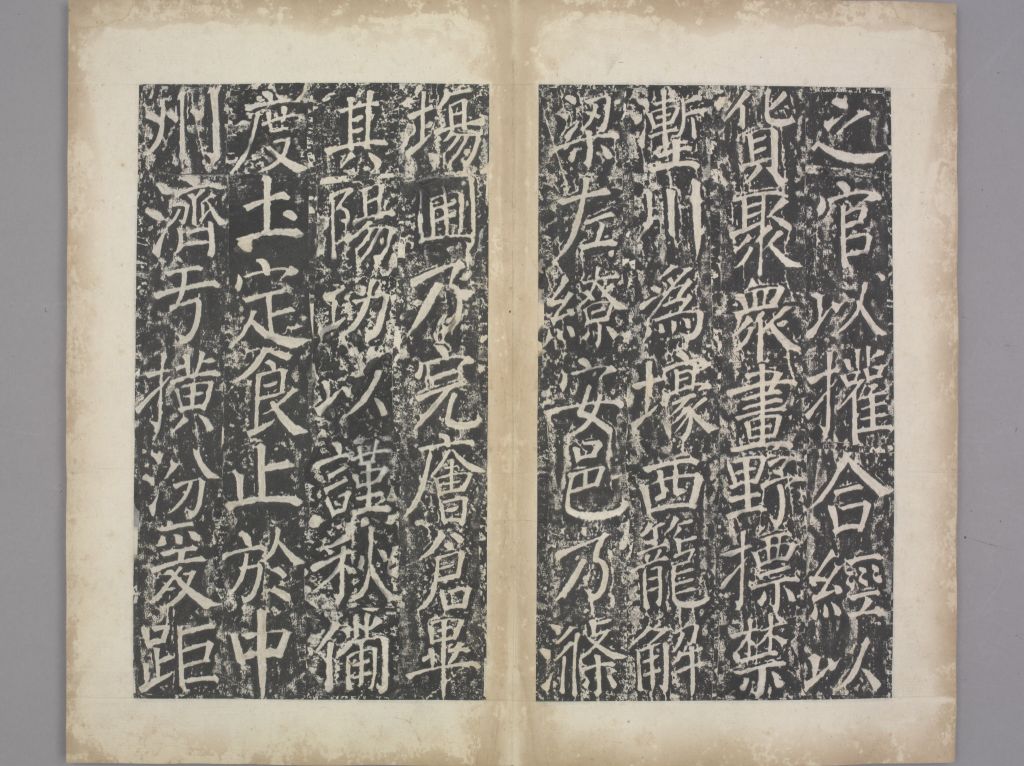 之官以攉合經以
貨聚衆畫野摽禁
塹川爲壕西籠解
梁左繚安邑乃滌
塲圃乃完廥倉畢
其陽功以謹秋備
度土定食止於中
州濟于撗汾爰距